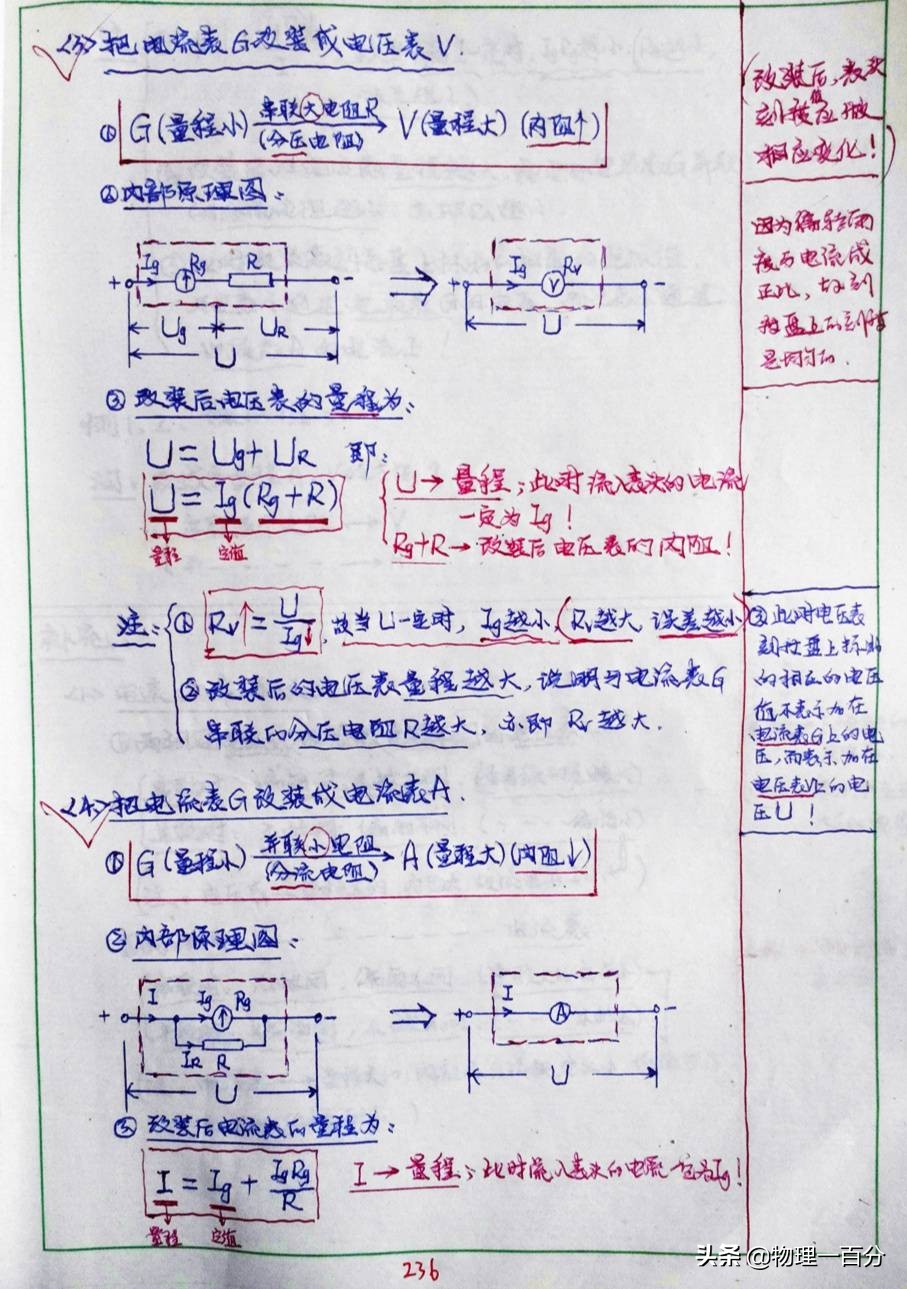 <3>把电流表G改装成电压表V
① G(量程小) 串联大电阻R (分压电阻) V(量程大) (内阻↑)
②内部原理图:
+ Ig Rg R -
Ug UR
U
+ Ig Rv V -
U
③ 改装后电压表的量程为:
U=Ug+UR 即:
U=Ig(Rg+R)
量程 定值
U→量程;此时流入表头的电流
一定为Ig!
Rg+R→改装后电压表的内阻!
注: ① Rv↑=U/Ig↓,故当U一定时,Ig越小,Rv越大,误差越小
②改装后的电压表量程越大,说明与电流表G
串联的分压电阻R越大,亦即Rv越大
<4>把电流表G改装成电流表A.
① G(量程小) 并联小电阻 (分流电阻) A(量程大)(内阻↓)
②内部原理图:
+ I Ig Rg -
IR R
U
+ I A -
U
③ 改装后电流表的量程为:
I=Ig+IgRg/R
量程 定值
I→量程;此时流入表头的电流一定为Ig!
改装后,表头
刻度值应做
相应变化!
因为偏转角
度与电流成
正比,故刻
度盘上的刻度
是均匀的.
③此时电压表
刻度盘上标出
的相应的电压
值不表示加在
电流表G上的电
压,而表示加在
电压表V上的电
压U!
236
头条@物理一百分